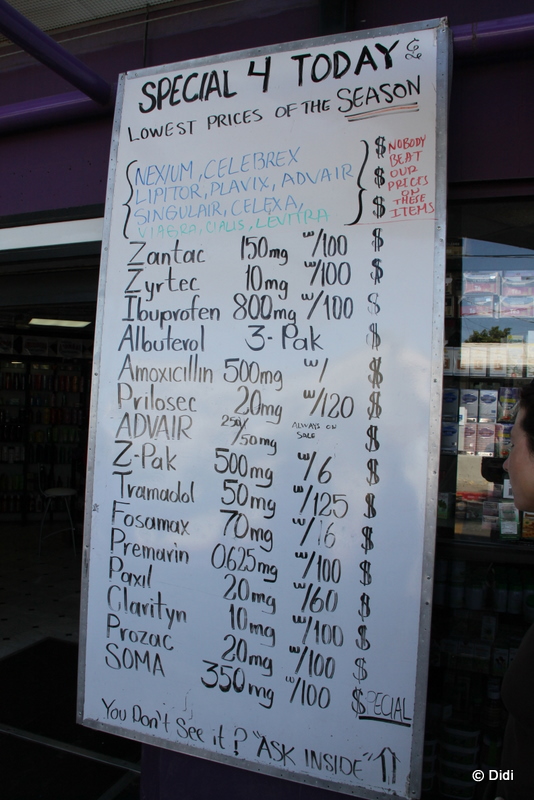 SPECIAL 4 TODAY
LOWEST PRICES OF THE SEASON
NEXIUM, CELEBREX
LIPITOR, PLAVIX, ADVAIR
SINGULAIR, CELEXA,
VIAGRA, CIALIS, LEVITRA
$
$
$
NOBODY
BEAT
OUR
PRICES
ON
THESE
ITEMS
Zantac 150mg w/100 $
Zyrtec 10mg w/100 $
Ibuprofen 800mg w/100 $
Albuterol 3-Pak $
Amoxicillin 500mg w/ $
Prilosec 20mg w/120 $
ADVAIR 250/50mg ALWAYS ON SALE $
Z-Pak 500mg w/6 $
Tramadol 50mg w/125 $
Fosamax 70mg w/16 $
Premarin 0.625mg w/100 $
Paxil 20mg w/60 $
Clarityn 10mg w/100 $
Prozac 20mg w/100 $
SOMA 350mg w/100 $PECIAL
You Don't See it? "ASK INSIDE"
© Didi